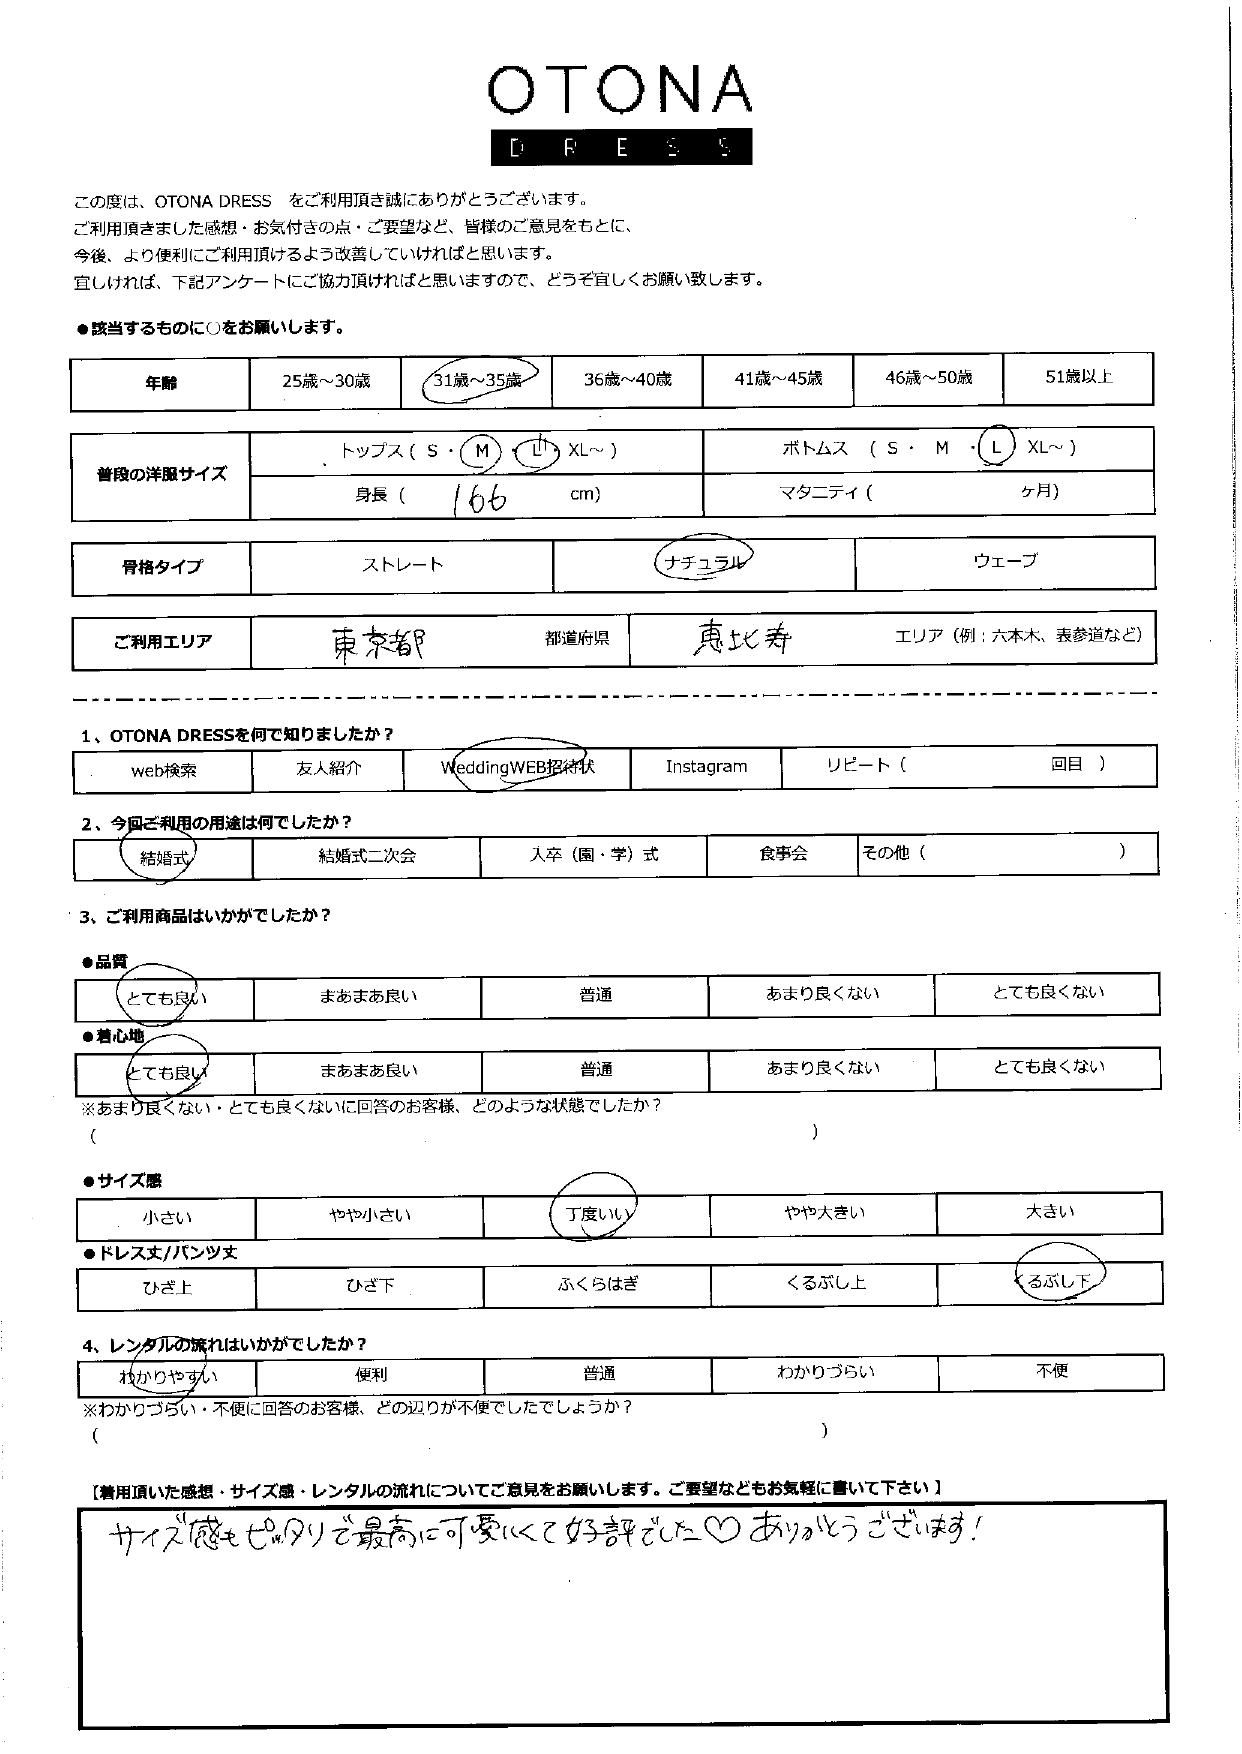 OTONA
DRESS
この度は、OTONA DRESS をご利用頂き誠にありがとうございます。
ご利用頂きました感想・お気付きの点・ご要望など、皆様のご意見をもとに、
今後、より便利にご利用頂けるよう改善していければと思います。
宜しければ、下記アンケートにご協力頂ければと思いますので、どうぞ宜しくお願い致します。
●該当するものに○をお願いします。
年齢 25歳～30歳 31歳～35歳 36歳～40歳 41歳～45歳 46歳～50歳 51歳以上
普段の洋服サイズ トップス ( S ・ M ・ L ・ XL～ ) ボトムス ( S ・ M ・ L XL～ )
身長 ( 166 cm) マタニティ ( ケ月)
骨格タイプ ストレート ナチュラル ウェーブ
ご利用エリア 東京都 都道府県 恵比寿 エリア（例：六本木、表参道など）
1、OTONA DRESSを何で知りましたか？
web検索 友人紹介 WeddingWEB招待状 Instagram リピート ( 回目 )
2、今回ご利用の用途は何でしたか？
結婚式 結婚式二次会 入卒（園・学）式 食事会 その他 ( )
3、ご利用商品はいかがでしたか？
●品質
とても良い まあまあ良い 普通 あまり良くない とても良くない
●着心地
とても良い まあまあ良い 普通 あまり良くない とても良くない
※あまり良くない・とても良くないに回答のお客様、どのような状態でしたか？
( )
●サイズ感
小さい やや小さい 丁度いい やや大きい 大きい
●ドレス丈/パンツ丈
ひざ上 ひざ下 ふくらはぎ くるぶし上 くるぶし下
4、レンタルの流れはいかがでしたか？
わかりやすい 便利 普通 わかりづらい 不便
※わかりづらい・不便に回答のお客様、どの辺りが不便でしたでしょうか？
( )
【着用頂いた感想・サイズ感・レンタルの流れについてご意見をお願いします。ご要望などもお気軽に書いて下さい】
サイズ感もピッタリで最高に可愛いくて好評でした♡ ありがとうございます！